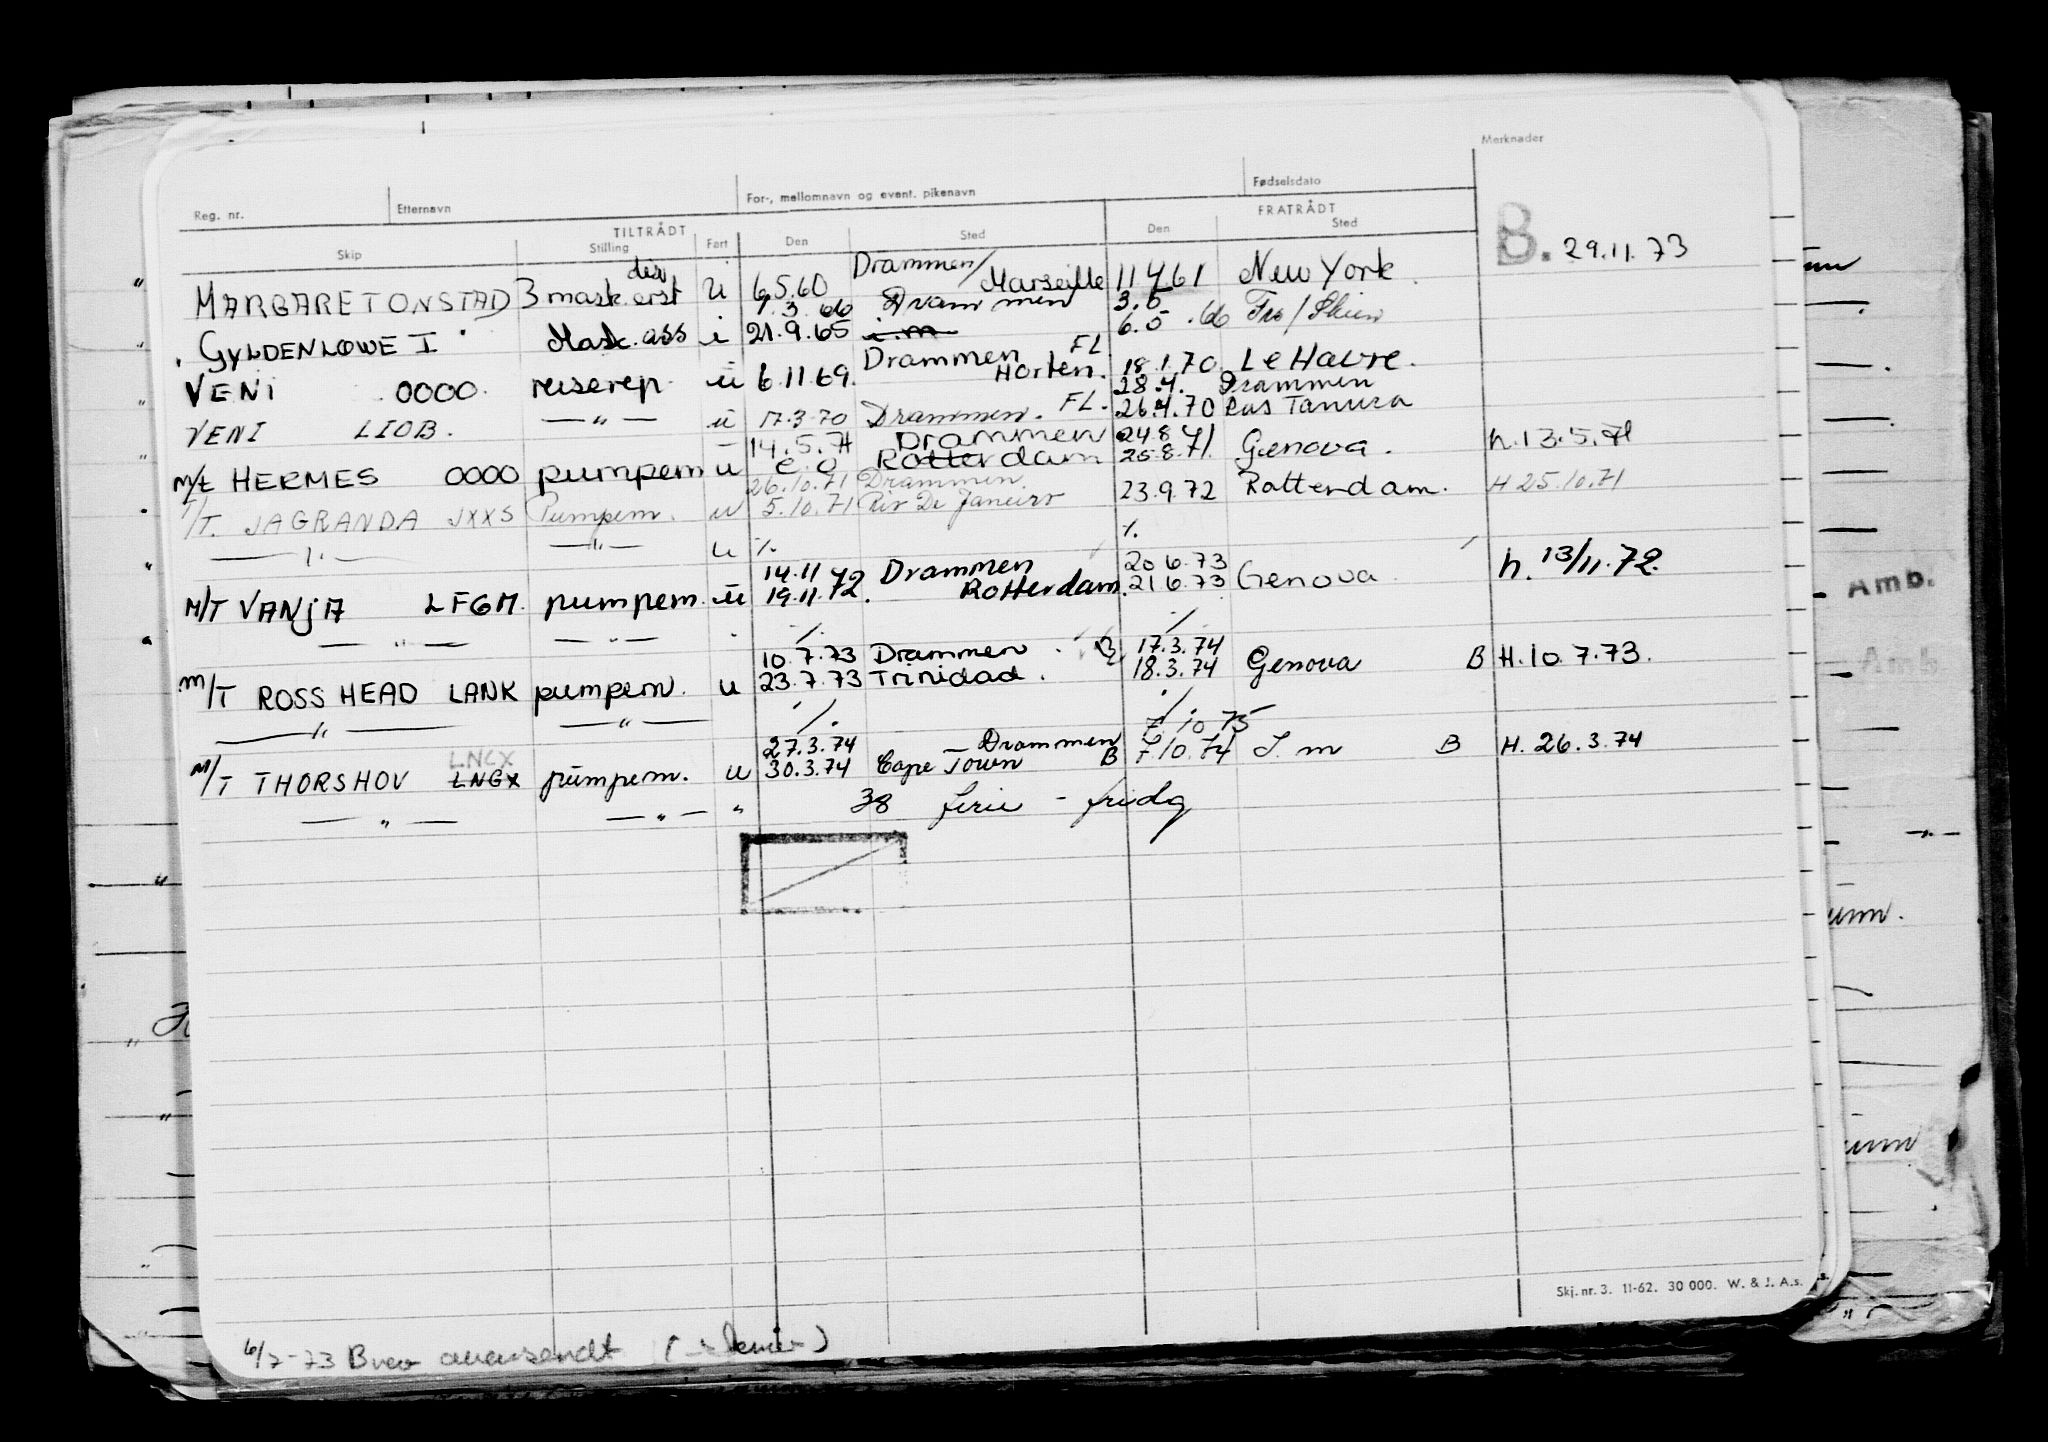 Merknader
Reg. nr. Etternavn For-, mellomnavn og event. pikenavn Fødselsdato
TILTRÅDT FRATRÅDT
Skip Stilling Fart Den Sted Den Sted
B. 29.11.73
MARGARET ONSTAD 3 mask. erst u 6.5.60 Drammen/ Marseille 11 4 61 New York
1.3.66 Drammen 3.5
GYLDENLØWE I Mask. ass i 21.9.65 i.m 6.5.66 Fra/Skien
VENI 0000 reiserep. u 6.11.69. Drammen FL Horten. 18.1.70 Le Havre.
28.4. Drammen
VENI LIOB. — " — u 17.3.70 Drammen. FL. 26.4.70 Ras Tanura
14.5.71 Drammen 24.8.71
M/T HERMES 0000 pumpem u Rotterdam 25.8.71. Genova. h. 13.5.71
26.10.71 Drammen.
T/T. JAGRANDA JXXS Pumpem. u 5.10.71 Rio De Janeiro 23.9.72 Rotterdam. H 25.10.71
— " — — " — u ./. ./.
14.11.72 Drammen 20.6.73
M/T VANJA LFGM. pumpem. u 19.11.72. Rotterdam. 21.6.73 Genova h. 13/11.72.
— " — — " — ./. ./.
10.7.73 Drammen B 17.3.74
M/T ROSS HEAD LANK pumpem. u 23.7.73 Trinidad. 18.3.74 Genova B H. 10.7.73.
— " — — " — ./. ./.
27.3.74 Drammen 7.10.75
LNCX
M/T THORSHOV LNGX pumpem. u 30.3.74 Cape Town B 7.10.74 S.m B H. 26.3.74
— " — — " — " 38 ferie - fridg
Amb.
Amb
Skj. nr. 3. 11-62. 30 000. W. & J. A.s.
6/7-73 Brev avsendt